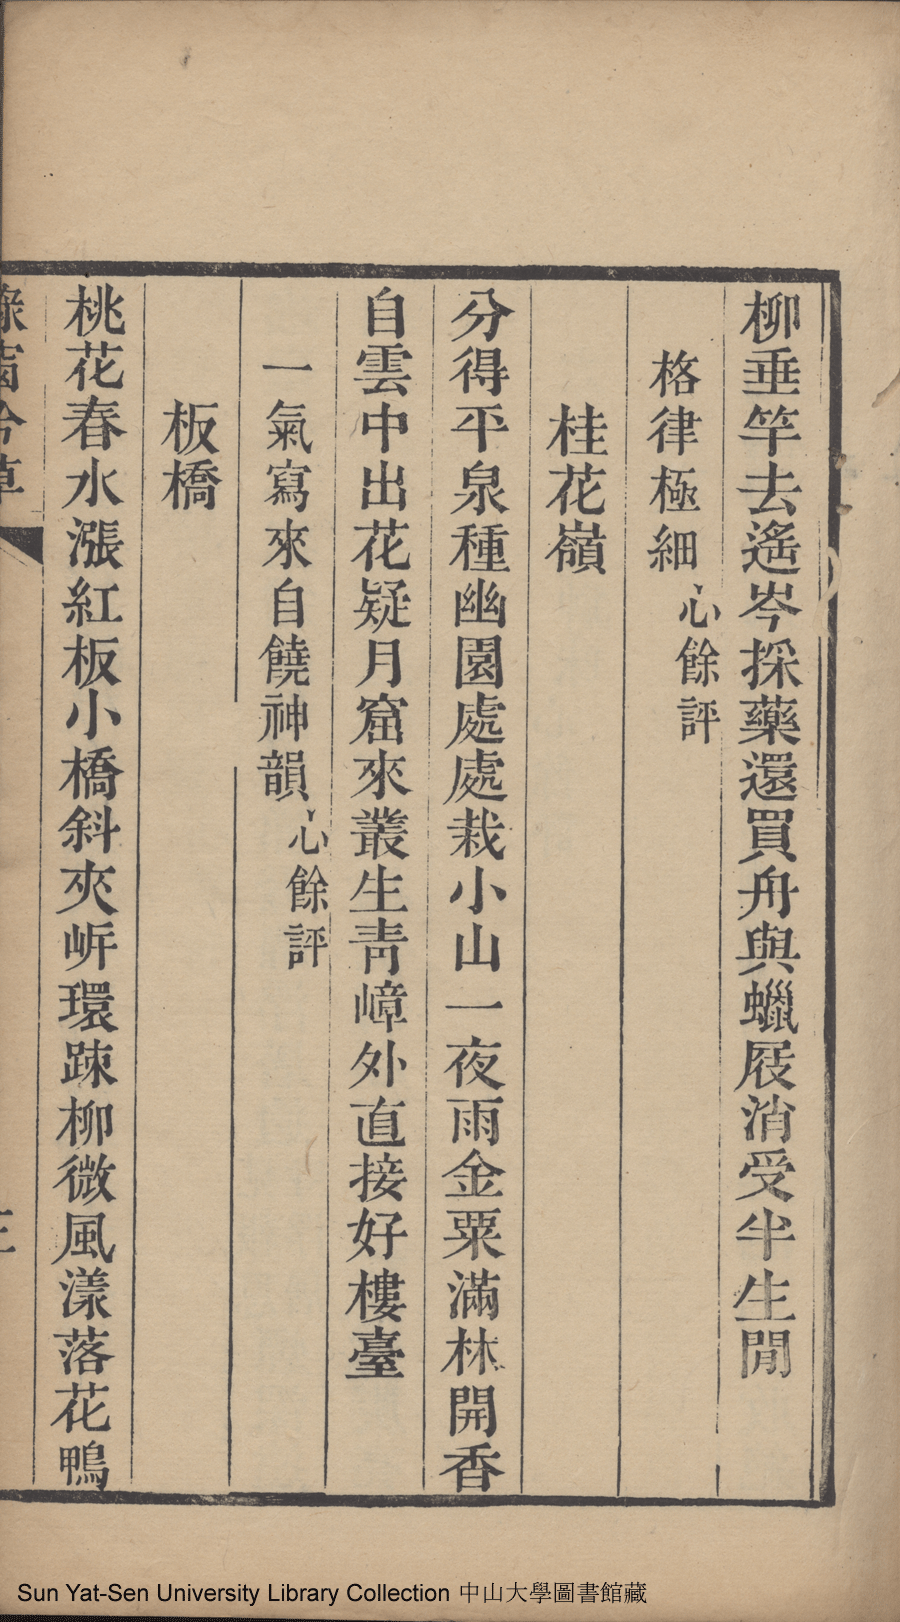 柳垂竿去遙岑採藥還買舟與蠟屐消受半生閒
格律極細心餘評
桂花嶺
分得平泉種幽園處處栽小山一夜雨金粟滿林開香
自雲中出花疑月窟來叢生靑嶂外直接好樓臺
一氣寫來自饒神韻心餘評
板橋
桃花春水漲紅板小橋斜夾岍環踈柳微風漾落花鴨
Sun Yat-Sen University Library Collection 中山大學圖書館藏